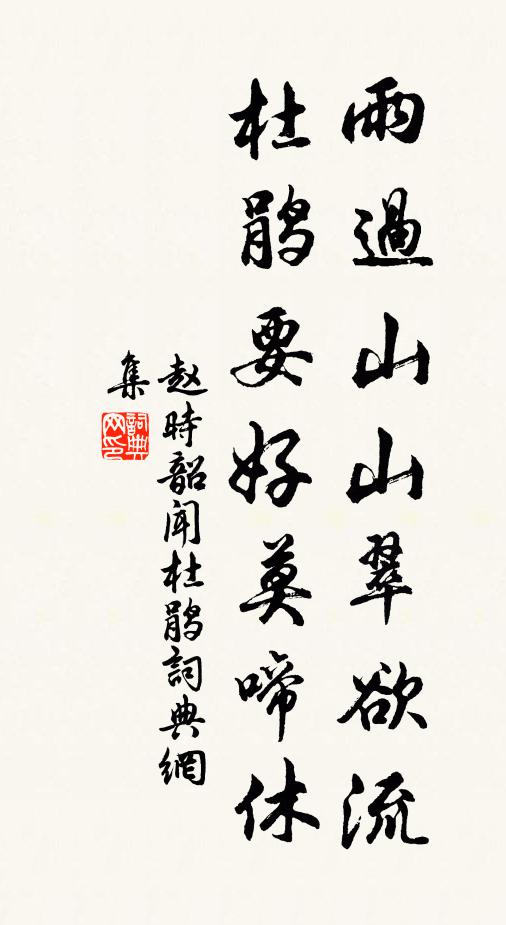 雨過山山翠欲流
杜鹃要好莫啼休
赵時韶闻杜鹃詞典網
集
詞典網印